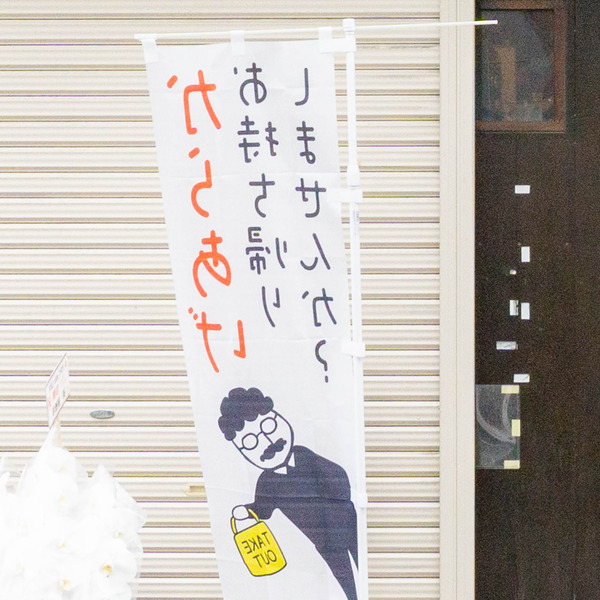 からあげ
お持ち帰り
しませんか?
TAKE
OUT